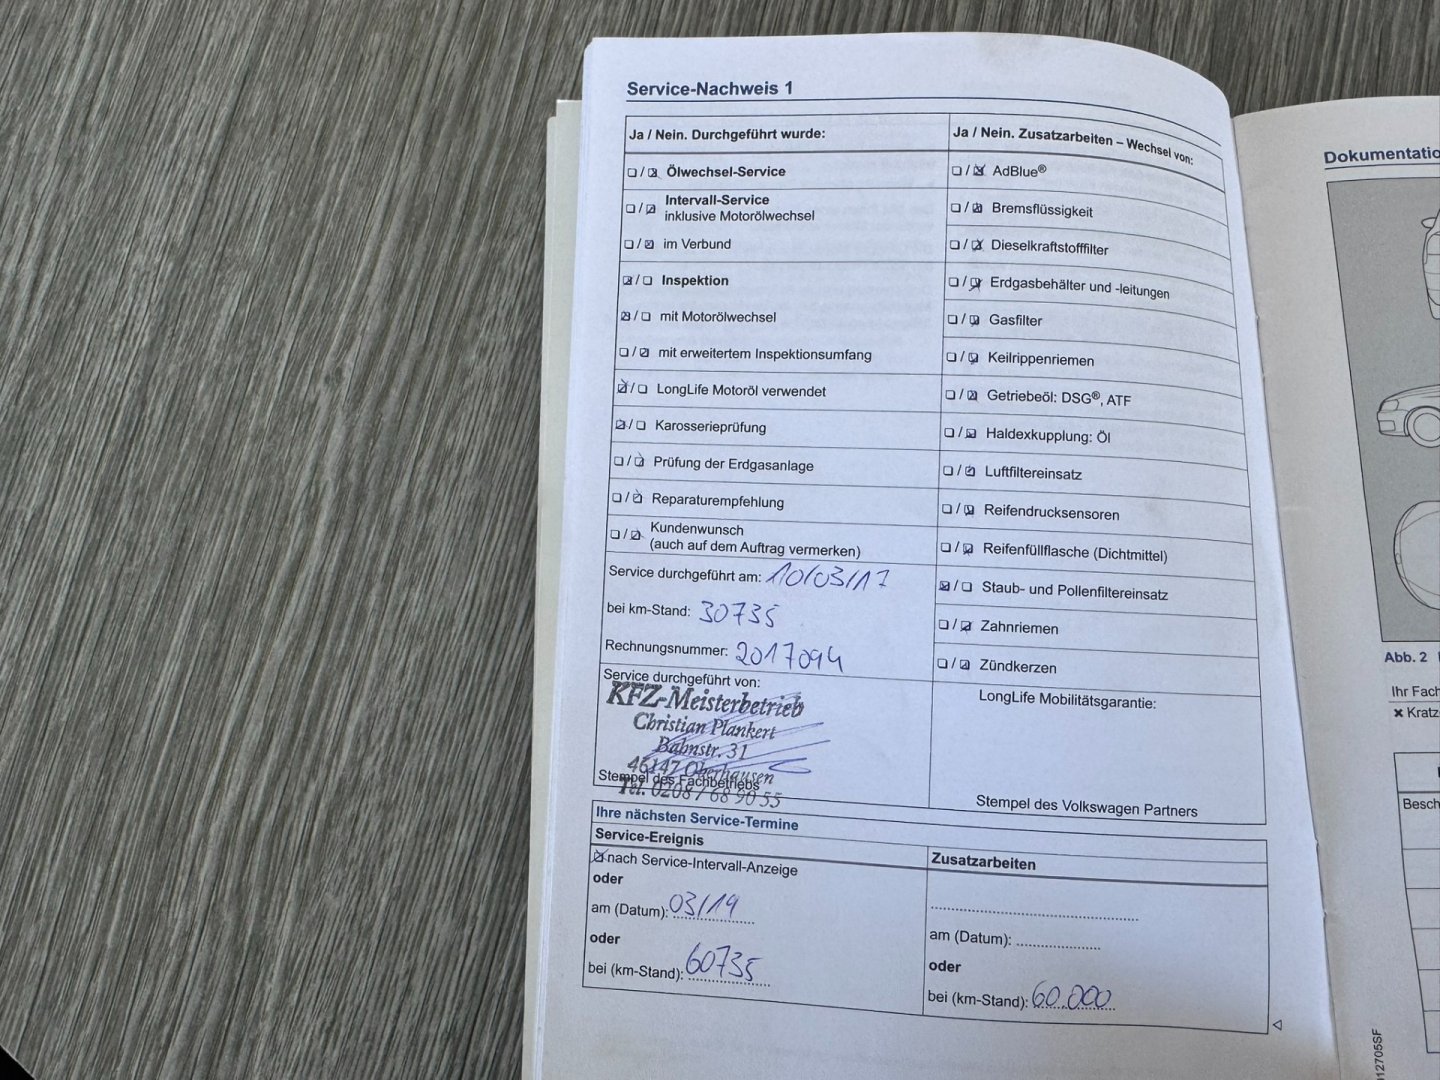 Service-Nachweis 1
Ja / Nein. Durchgeführt wurde:
☐ / ☒ Ölwechsel-Service
☐ / ☒ Intervall-Service
inklusive Motorölwechsel
☐ / ☒ im Verbund
☒ / ☐ Inspektion
☒ / ☐ mit Motorölwechsel
☐ / ☒ mit erweitertem Inspektionsumfang
☒ / ☐ LongLife Motoröl verwendet
☒ / ☐ Karosserieprüfung
☐ / ☒ Prüfung der Erdgasanlage
☐ / ☒ Reparaturempfehlung
☐ / ☒ Kundenwunsch
(auch auf dem Auftrag vermerken)
Service durchgeführt am: 10/03/17
bei km-Stand: 30735
Rechnungsnummer: 2017094
Service durchgeführt von:
KFZ-Meisterbetrieb
Christian Plankert
Bahnstr. 31
46147 Oberhausen
Stempel des Fachbetriebs
Tel. 0208 / 68 90 55
Ja / Nein. Zusatzarbeiten – Wechsel von:
☐ / ☒ AdBlue®
☐ / ☒ Bremsflüssigkeit
☐ / ☒ Dieselkraftstofffilter
☐ / ☒ Erdgasbehälter und -leitungen
☐ / ☒ Gasfilter
☐ / ☒ Keilrippenriemen
☐ / ☒ Getriebeöl: DSG®, ATF
☐ / ☒ Haldexkupplung: Öl
☐ / ☒ Luftfiltereinsatz
☐ / ☒ Reifendrucksensoren
☐ / ☒ Reifenfüllflasche (Dichtmittel)
☒ / ☐ Staub- und Pollenfiltereinsatz
☐ / ☒ Zahnriemen
☐ / ☒ Zündkerzen
LongLife Mobilitätsgarantie:
Stempel des Volkswagen Partners
Ihre nächsten Service-Termine
Service-Ereignis
☒ nach Service-Intervall-Anzeige
oder
am (Datum): 03/19
oder
bei (km-Stand): 60735
Zusatzarbeiten
am (Datum):
oder
bei (km-Stand): 60.000
Dokumentatio
Abb. 2
Ihr Fach
✖ Kratz
Besch
12705SF